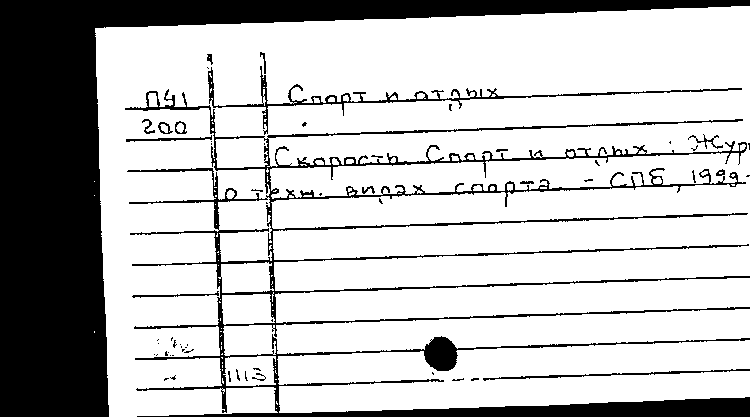 П41 Спорт и отдых
200
Скорость. Спорт и отдых : Жур
о техн. видах спорта. - СПб, 1999-
1113